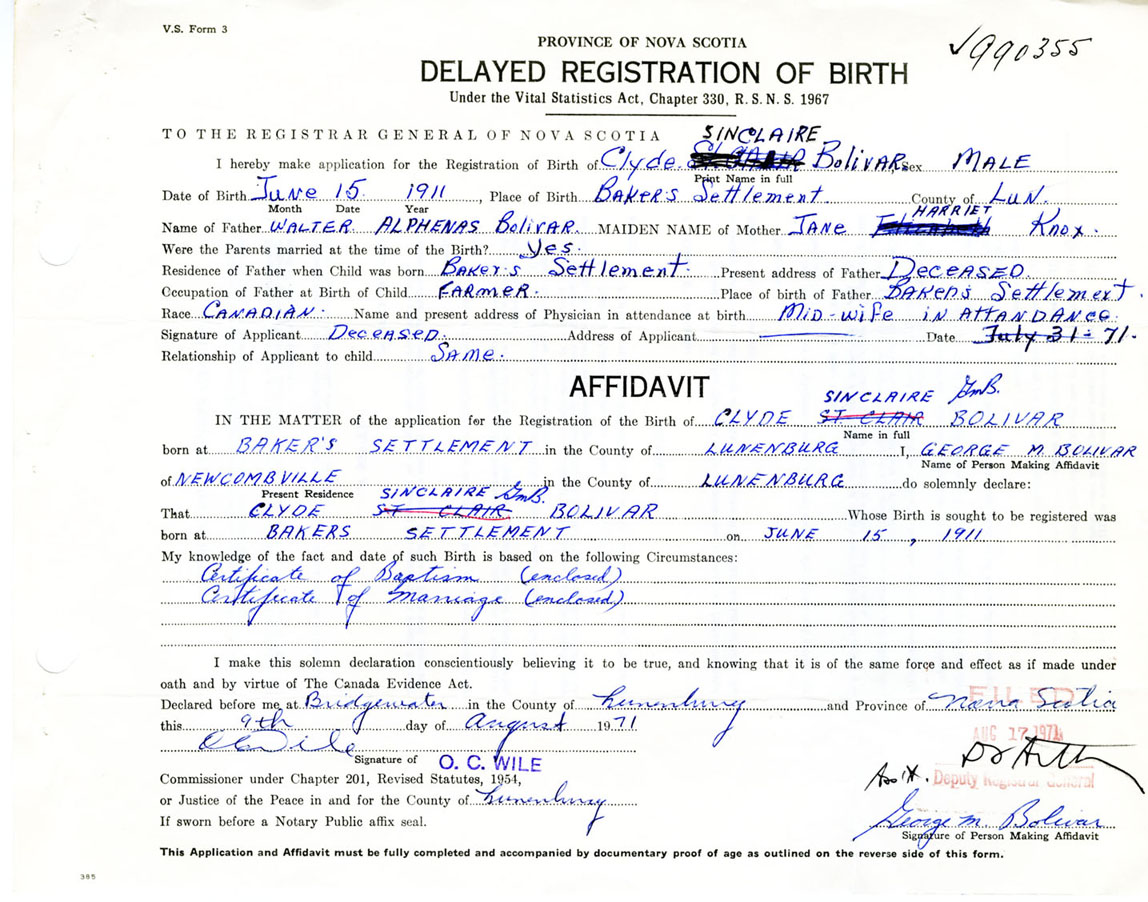 V.S. Form 3
✓990355
PROVINCE OF NOVA SCOTIA
DELAYED REGISTRATION OF BIRTH
Under the Vital Statistics Act, Chapter 330, R. S. N. S. 1967
TO THE REGISTRAR GENERAL OF NOVA SCOTIA SINCLAIRE
I hereby make application for the Registration of Birth of Clyde Bolivar Sex MALE
Print Name in full
Date of Birth June 15 1911, Place of Birth Bakers Settlement County of LUN.
Month Date Year HARRIET
Name of Father WALTER ALPHENAS Bolivar. MAIDEN NAME of Mother JANE Elizabeth Knox.
Were the Parents married at the time of the Birth? Yes.
Residence of Father when Child was born Baker's Settlement. Present address of Father Deceased
Occupation of Father at Birth of Child FARMER. Place of birth of Father BAKERS Settlement.
Race CANADIAN. Name and present address of Physician in attendance at birth Mid-wife in ATTANDANCE
Signature of Applicant Deceased. Address of Applicant Date July 31-71.
Relationship of Applicant to child SAME.
AFFIDAVIT
SINCLAIRE GmB.
IN THE MATTER of the application for the Registration of the Birth of CLYDE ST. CLAIR BOLIVAR
Name in full
born at BAKER'S SETTLEMENT in the County of LUNENBURG I, GEORGE M. BOLIVAR
Name of Person Making Affidavit
of NEWCOMBVILLE in the County of LUNENBURG do solemnly declare:
Present Residence SINCLAIRE GmB.
That CLYDE ST CLAIR BOLIVAR Whose Birth is sought to be registered was
born at BAKERS SETTLEMENT on JUNE 15, 1911
My knowledge of the fact and date of such Birth is based on the following Circumstances:
Certificate of Baptism (enclosed)
Certificate of Marriage (enclosed)
I make this solemn declaration conscientiously believing it to be true, and knowing that it is of the same force and effect as if made under
oath and by virtue of The Canada Evidence Act.
Declared before me at Bridgewater in the County of Lunenburg and Province of Nova Scotia
FILED
this 9th day of August 1971
AUG 17 1971
O C Wile
Signature of O. C. WILE
Commissioner under Chapter 201, Revised Statutes, 1954,
Ass't. Deputy Registrar General
or Justice of the Peace in and for the County of Lunenburg
George M Bolivar
If sworn before a Notary Public affix seal.
Signature of Person Making Affidavit
This Application and Affidavit must be fully completed and accompanied by documentary proof of age as outlined on the reverse side of this form.
385